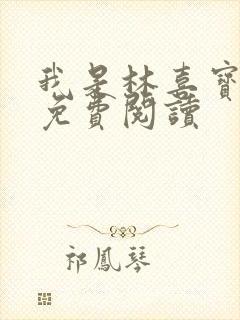 我是林喜寶
免費閱讀
祁鳳琴